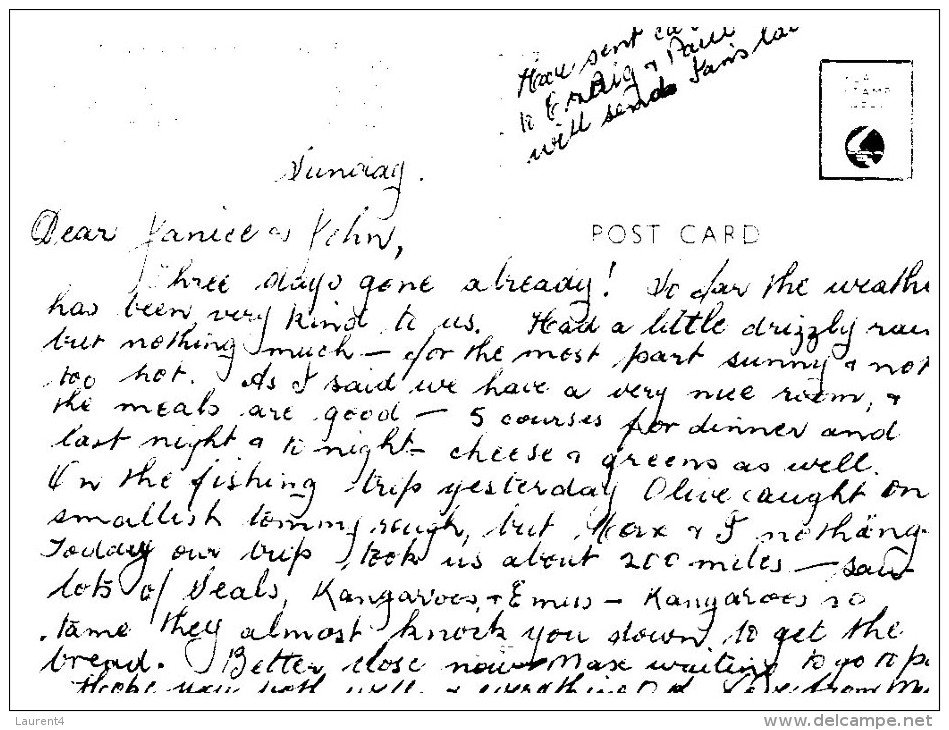 Have sent
to Craig & Paul
will send Jan's
Sunday.
POST CARD
Dear Janice & John,
Three days gone already! So far the weathe
has been very kind to us. Had a little drizzly rain
but nothing much – for the most part sunny & not
too hot. As I said we have a very nice room, &
the meals are good – 5 courses for dinner and
last night & to night – cheese & greens as well.
On the fishing trip yesterday Olive caught on
smallish tommy rough, but Max & I nothing.
Today our trip took us about 200 miles – saw
lots of Seals, Kangaroos, & Emus – Kangaroos so
tame they almost knock you down to get the
bread. Better close now Max waiting to go to p
Hope you both well & everything O.K. Love from
Laurent4
www.delcampe.net